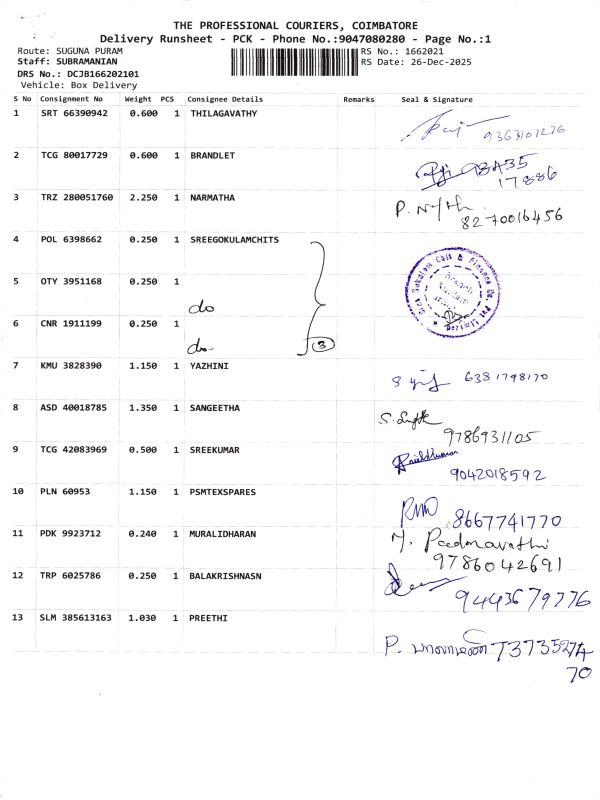 THE PROFESSIONAL COURIERS, COIMBATORE
Delivery Runsheet - PCK - Phone No.:9047080280 - Page No.:1
Route: SUGUNA PURAM RS No.: 1662021
Staff: SUBRAMANIAN RS Date: 26-Dec-2025
DRS No.: DCJB166202101
Vehicle: Box Delivery
S No Consignment No Weight PCS Consignee Details Remarks Seal & Signature
1 SRT 66390942 0.600 1 THILAGAVATHY
9363101276
2 TCG 80017729 0.600 1 BRANDLET
98435
17886
3 TRZ 280051760 2.250 1 NARMATHA
8270016456
4 POL 6398662 0.250 1 SREEGOKULAMCHITS
5 OTY 3951168 0.250 1
do
6 CNR 1911199 0.250 1
do
3
7 KMU 3828390 1.150 1 YAZHINI
6381798170
8 ASD 40018785 1.350 1 SANGEETHA
9786931105
9 TCG 42083969 0.500 1 SREEKUMAR
9042018592
10 PLN 60953 1.150 1 PSMTEXSPARES
8667741770
11 PDK 9923712 0.240 1 MURALIDHARAN
M. Padmavathi
9786042691
12 TRP 6025786 0.250 1 BALAKRISHNASN
9443679776
13 SLM 385613163 1.030 1 PREETHI
P.
70